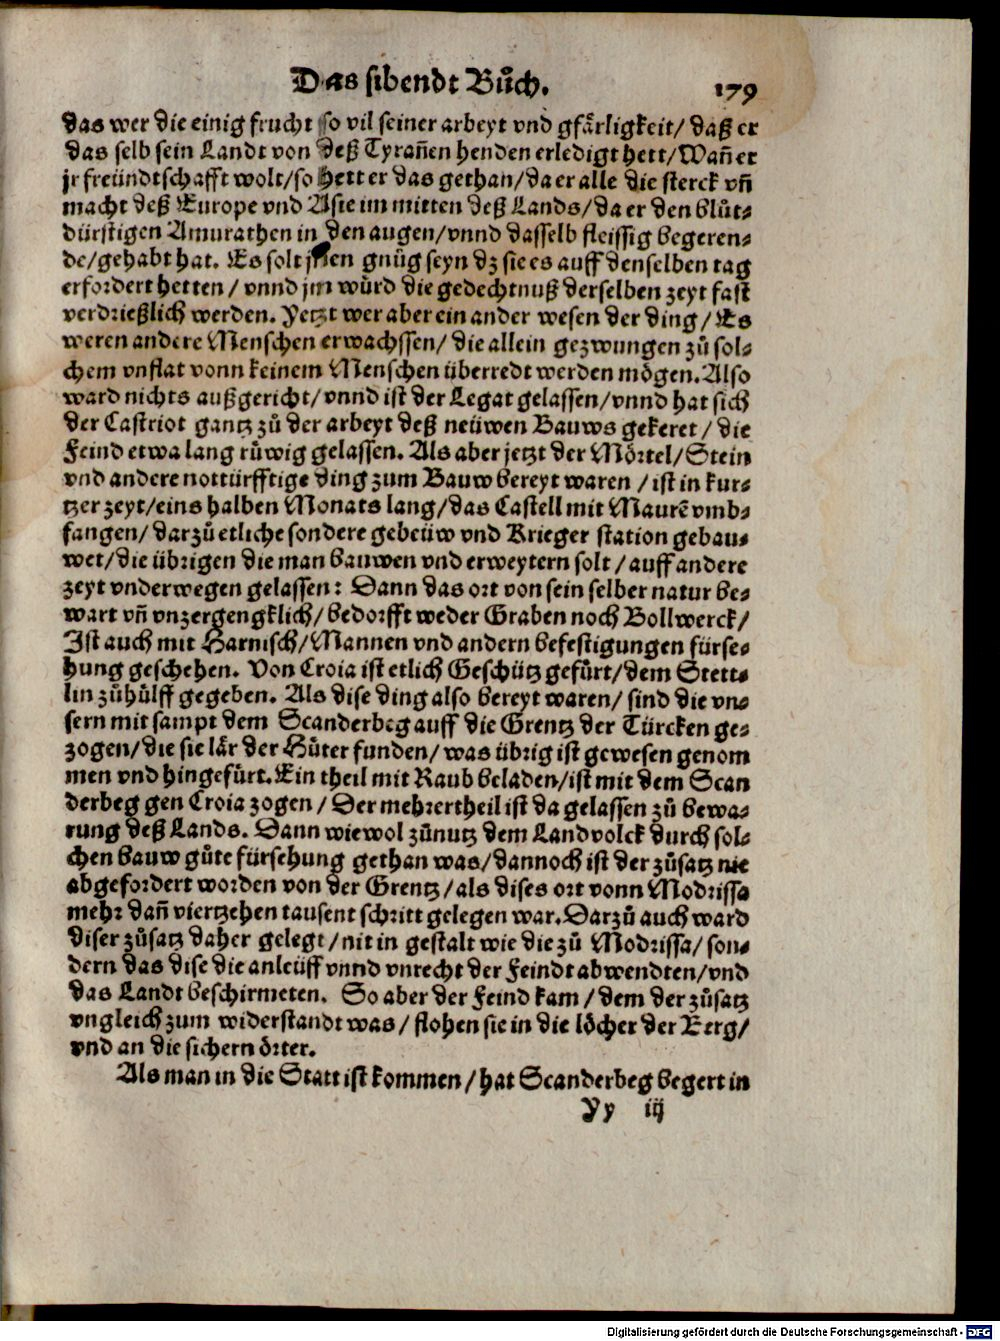 Das sibendt Bůch. 179
das wer die einig frucht so vil seiner arbeyt vnd gfärligkeit/ daß er
das selb sein Landt von deß Tyrañen henden erledigt hett/Wañ er
jr freündtschafft wolt/so hett er das gethan/da er alle die sterck vñ
macht deß Europe vnd Asie im mitten deß Lands/da er den blůt-
dürstigen Amurathen in den augen/vnnd dasselb fleissig begeren-
de/gehabt hat. Es solt jnen gnůg seyn dz sie es auff denselben tag
erfordert hetten / vnnd jm würd die gedechtnuß derselben zeyt fast
verdrießlich werden. Yetzt wer aber ein ander wesen der ding / Es
weren andere Menschen erwachssen/ die allein gezwungen zů sol-
chem vnflat vonn keinem Menschen überredt werden mögen. Also
ward nichts außgericht/vnnd ist der Legat gelassen/vnnd hat sich
der Castriot gantz zů der arbeyt deß neüwen Bauws gekeret / die
Feind etwa lang růwig gelassen. Als aber jetzt der Mörtel/Stein
vnd andere nottürfftige ding zum Bauw bereyt waren / ist in kur-
tzer zeyt/eins halben Monats lang/das Castell mit Maurē vmb-
fangen/ darzů etliche sondere gebeüw vnd Krieger station gebau-
wet/die übrigen die man bauwen vnd erweytern solt / auff andere
zeyt vnderwegen gelassen: Dann das ort von sein selber natur be-
wart vñ vnzergengklich/ bedorfft weder Graben noch Bollwerck/
Ist auch mit Harnisch/Mannen vnd andern befestigungen fürse-
hung geschehen. Von Croia ist etlich Geschütz gefürt/dem Stett-
lin zůhülff gegeben. Als dise ding also bereyt waren/ sind die vn-
sern mit sampt dem Scanderbeg auff die Grentz der Türcken ge-
zogen/die sie lär der Hüter funden/was übrig ist gewesen genom
men vnd hingefürt. Ein theil mit Raub beladen/ist mit dem Scan
derbeg gen Croia zogen / Der mehrertheil ist da gelassen zů bewa-
rung deß Lands. Dann wiewol zůnutz dem Landvolck durch sol-
chen bauw gůte fürsehung gethan was/dannoch ist der zůsatz nie
abgefordert worden von der Grentz/als dises ort vonn Modrissa
mehr dañ viertzehen tausent schritt gelegen war. Darzů auch ward
diser zůsatz daher gelegt/nit in gestalt wie die zů Modrissa/ son-
dern das dise die anleüff vnnd vnrecht der Feindt abwendten/vnd
das Landt beschirmeten. So aber der Feind kam / dem der zůsatz
vngleich zum widerstandt was / flohen sie in die löcher der Berg/
vnd an die sichern örter.
Als man in die Statt ist kommen/hat Scanderbeg begert in
Yy iij
Digitalisierung gefördert durch die Deutsche Forschungsgemeinschaft - DFG